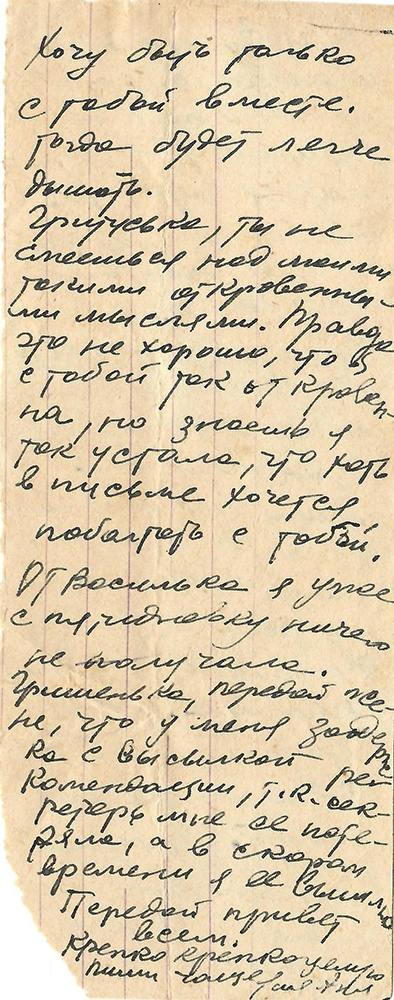 Хочу быть только
с тобой вместе.
Тогда будет легче
дышать.
Гришуська, ты не
смеешься над моими
такими откровенны-
ми мыслями. Правда
это не хорошо, что я
с тобой так откровен-
на, но знаешь я
так устала, что хоть
в письме хочется
поболтать с тобой.
От Василька я уже
с пятидневку ничего
не получала.
Гришенька, передай Же-
не, что у меня задерж-
ка с высылкой ре-
комендации, т.к. сек-
ретарь мне ее поте-
ряла, а в скором
времени я ее вышлю
Передай привет
всем.
Крепко крепко целую
пиши чаще